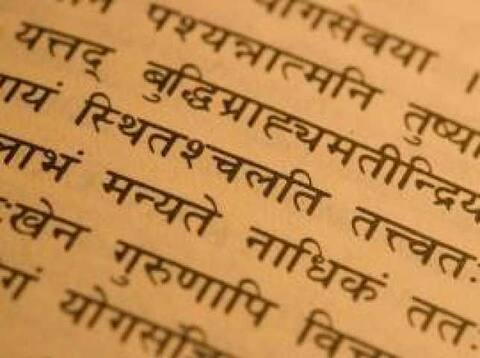 योगसेवया ।
पश्यन्नात्मनि तुष्या
यत्तद् बुद्धिग्राह्यमतीन्द्रिय
ायं स्थितश्चलति तत्त्वतः
लाभं मन्यते नाधिकं ततः
ःखेन गुरुणापि विच
गं योगसंज्ञि